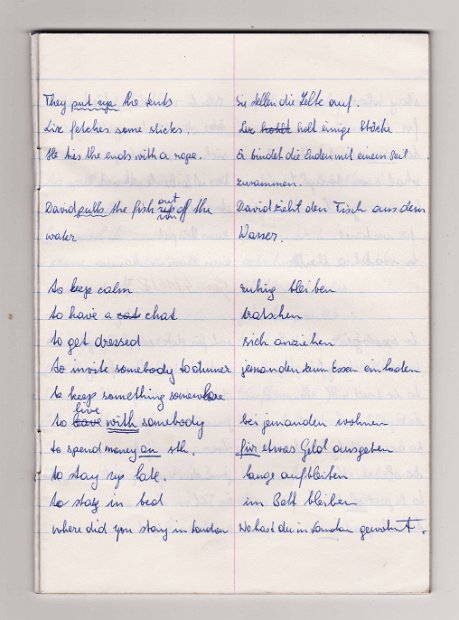 They put up the tents Sie stellen die Zelte auf.
Liz fetches some sticks. Liz holt einige Stöcke
He ties the ends with a rope. Er bindet die Enden mit einem Seil
zusammen.
out
David pulls the fish of the David zieht den Fisch aus dem
water Wasser.
to keep calm ruhig bleiben
to have a chat tratschen
to get dressed sich anziehen
to invite somebody to dinner jemanden zum Essen einladen
to keep something somewhere
live
to have with somebody bei jemanden wohnen
to spend money on sth. für etwas Geld ausgeben
to stay up late. lange aufbleiben
to stay in bed im Bett bleiben
where did you stay in London Wo hast du in London gewohnt.